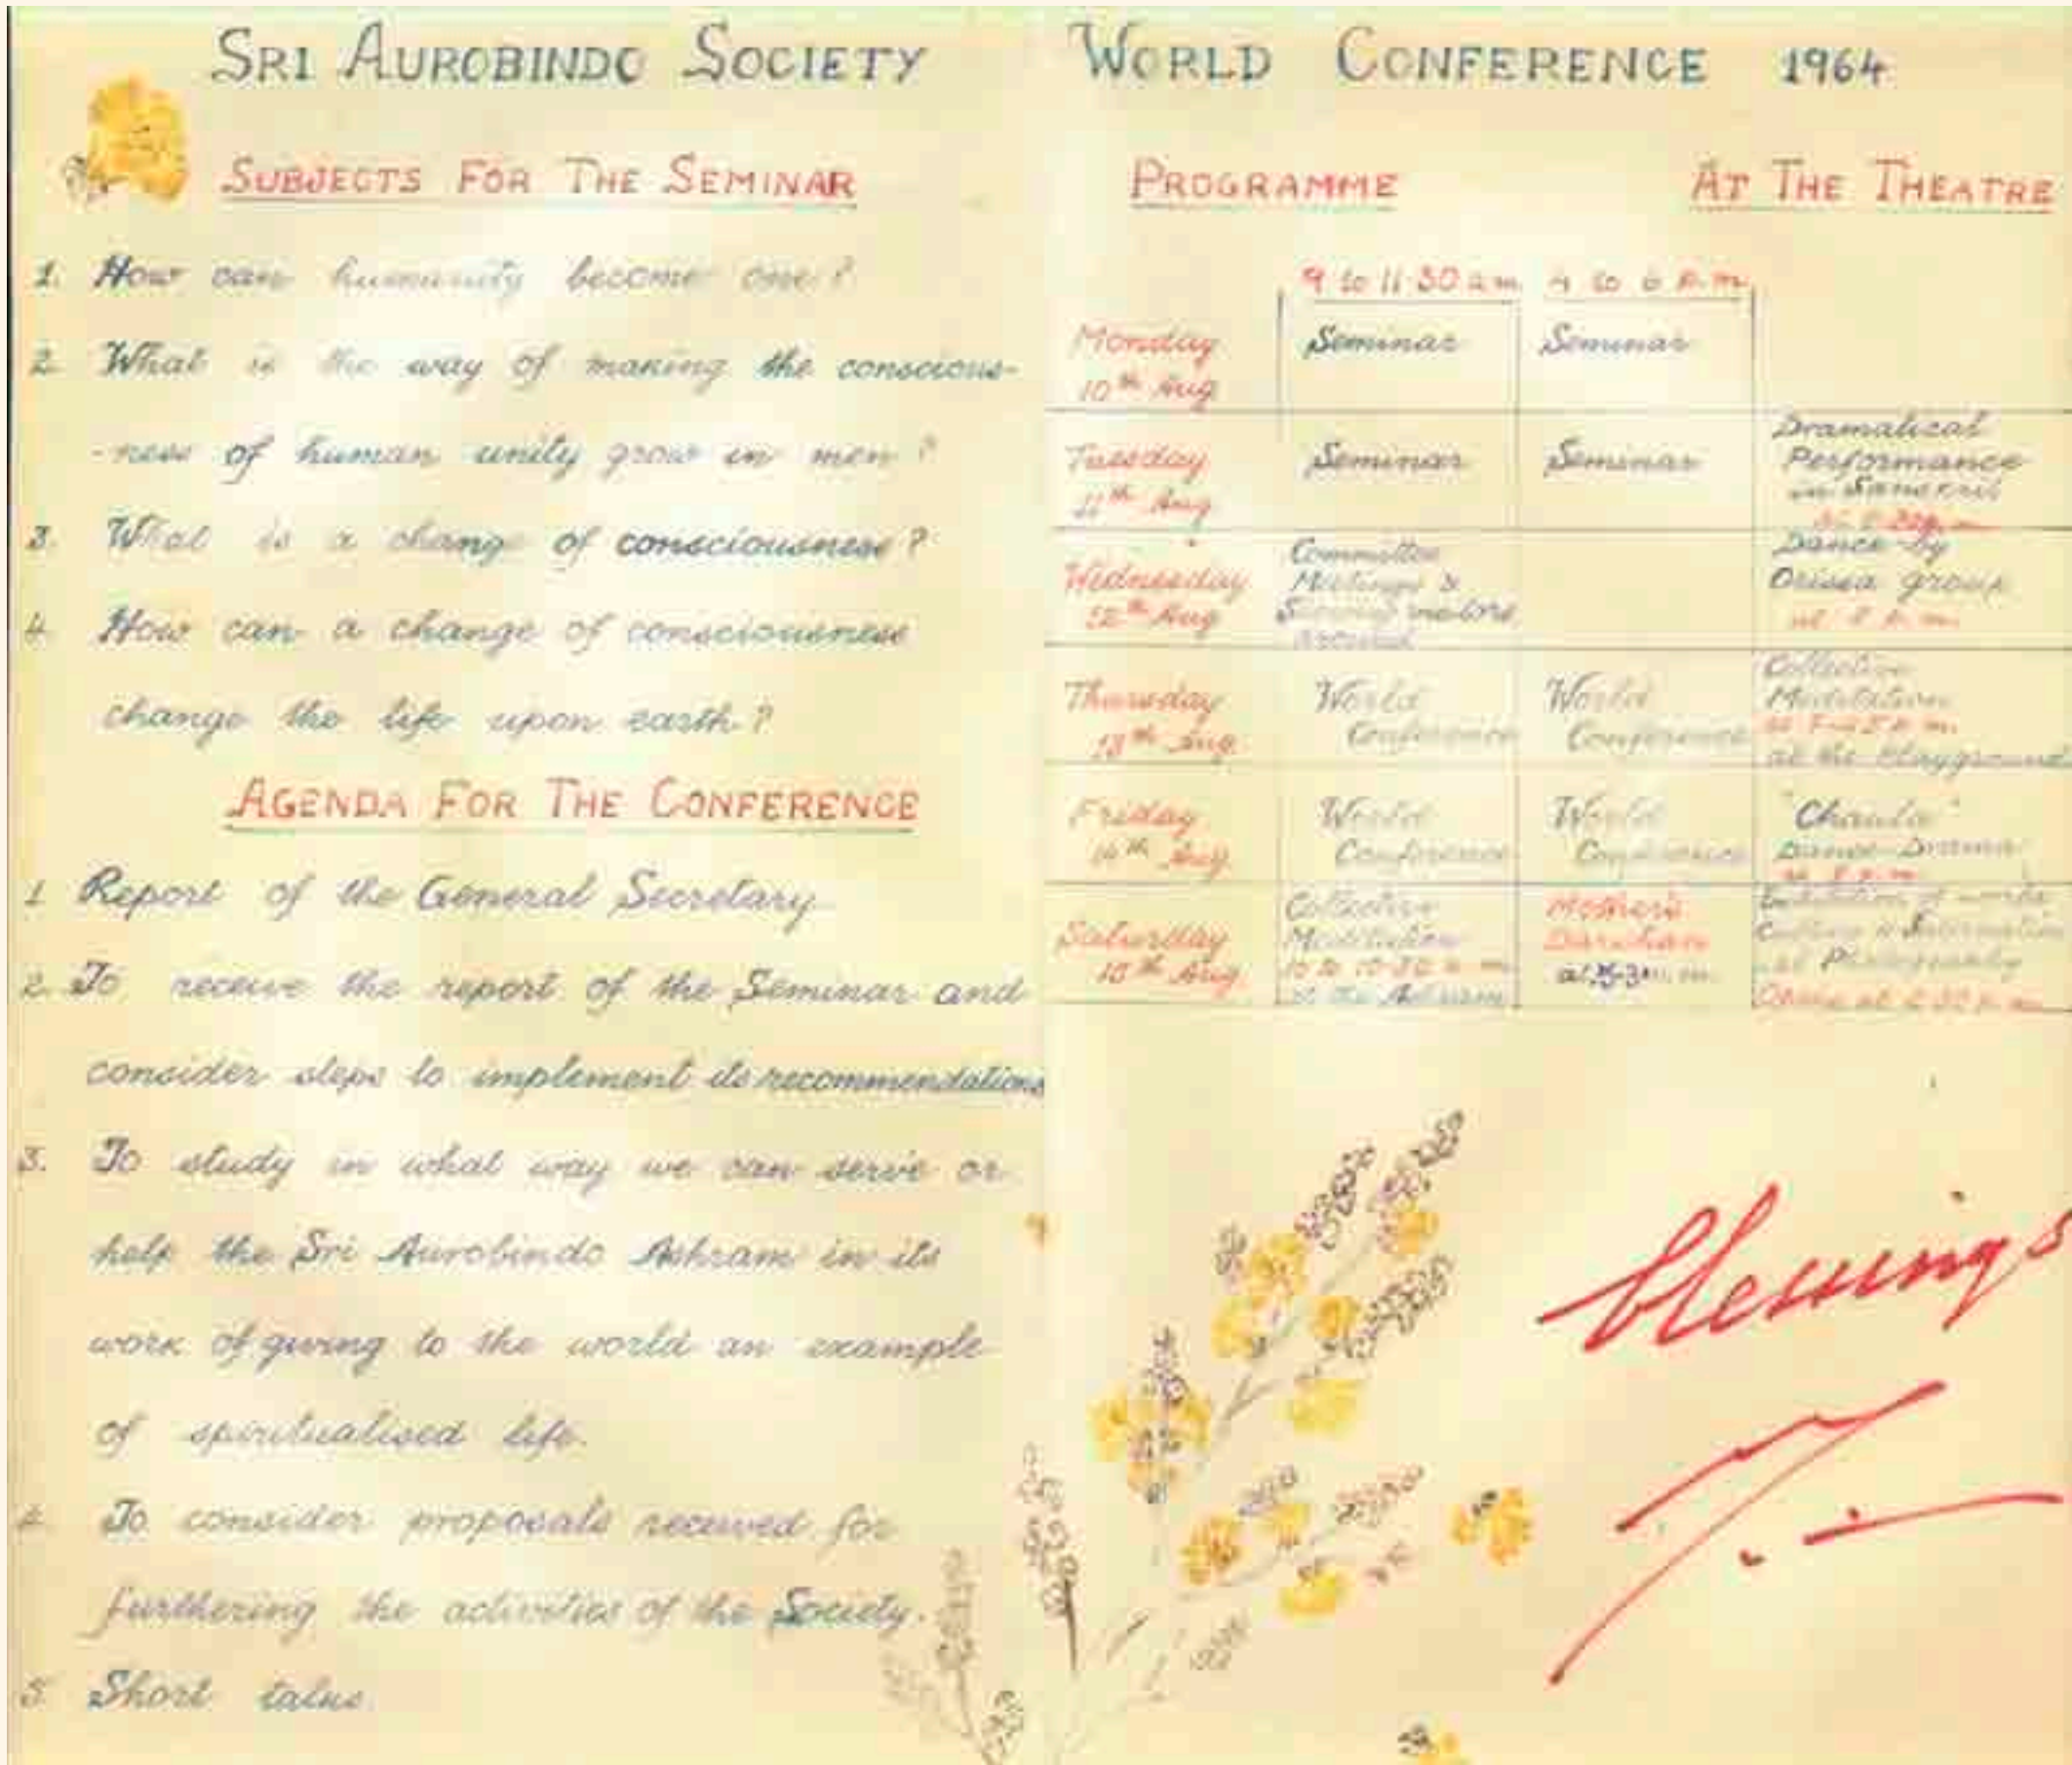 SRI AUROBINDO SOCIETY
SUBJECTS FOR THE SEMINAR
1. How can humanity become one?
2. What is the way of making the conscious-
-ness of human unity grow in men?
3. What is a change of consciousness?
4. How can a change of consciousness
change the life upon earth?
AGENDA FOR THE CONFERENCE
1. Report of the General Secretary
2. To receive the report of the Seminar and
consider steps to implement its recommendations
3. To study in what way we can serve or
help the Sri Aurobindo Ashram in its
work of giving to the world an example
of spiritualised life.
4. To consider proposals received for
furthering the activities of the Society.
5. Short talks.
WORLD CONFERENCE 1964
PROGRAMME AT THE THEATRE
9 to 11.30 a.m. to 6 p.m.
Monday
10th Aug
Seminar
Seminar
Tuesday
11th Aug
Seminar
Seminar
Dramatical
Performance
in Sanskrit
Wednesday
12th Aug
Committee
Meetings &
around
Dance by
Orissa group
at 8 p.m.
Thursday
13th Aug.
World
Conference
World
Conference
Collective
Meditation
at the Playground
Friday
14th Aug.
World
Conference
World
Conference
Dance-Drama
at 8 p.m.
Saturday
15th Aug.
Collective
Meditation
10 to 10-30 a.m.
at the Ashram
Mother's
Darshan
at
of
Photography
blessings